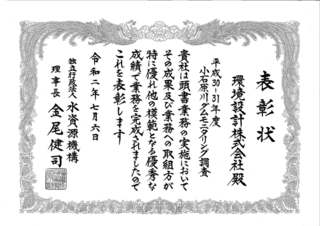 表彰状
環境設計株式会社殿
平成30-31年度
小石原川ダムモニタリング調査
貴社は頭書業務の実施において
その成果及び業務への取組方が
特に優れ他の模範となる優秀な
成績で業務を完成されましたので
これを表彰します
令和二年七月六日
独立行政法人水資源機構
理事長 金尾健司